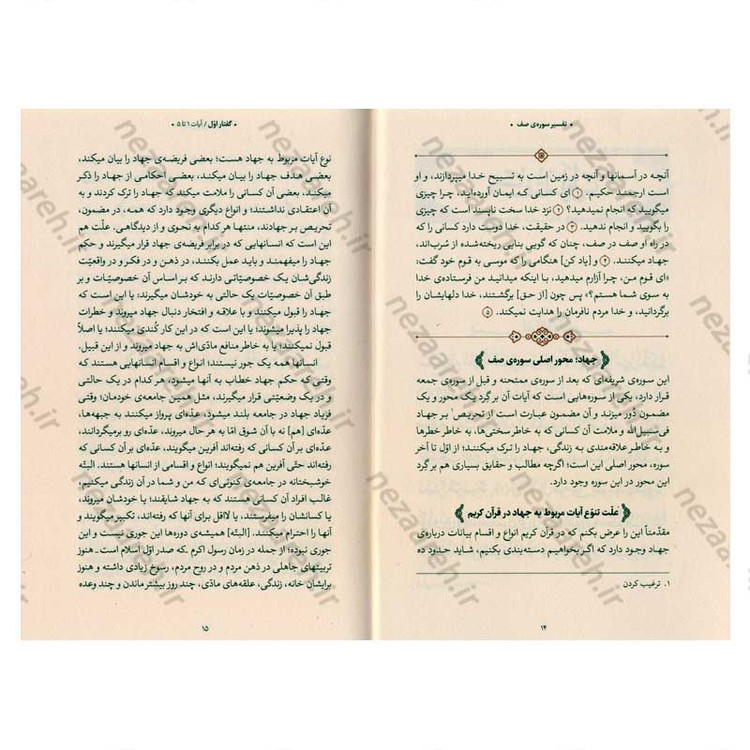 • تفسیر سوره‌ی صف •
آنچه در آسمانها و آنچه در زمین است به تسبیح خدا میپردازند، و او
است ارجمندِ حکیم. ۱ ای کسانی که ایمان آورده‌اید، چرا چیزی
میگویید که انجام نمیدهید؟ ۲ نزد خدا سخت ناپسند است که چیزی
را بگویید و انجام ندهید. ۳ در حقیقت، خدا دوست دارد کسانی را که
در راه او صف در صف، چنان که گویی بنایی ریخته‌شده از سُرب‌اند،
جهاد میکنند. ۴ و [یاد کن] هنگامی را که موسی به قوم خود گفت:
«ای قوم من، چرا آزارم میدهید، با اینکه میدانید من فرستاده‌ی خدا
به سوی شما هستم؟» پس چون [از حق] برگشتند، خدا دلهایشان را
برگردانید، و خدا مردم نافرمان را هدایت نمیکند. ۵
جهاد؛ محور اصلی سوره‌ی صف
این سوره‌ی شریفه‌ای که بعد از سوره‌ی ممتحنه و قبل از سوره‌ی جمعه
قرار دارد، یکی از سوره‌هایی است که آیات آن بر گِرد یک محور و یک
مضمون دَوْر میزند و آن مضمون عبارت است از تحریص¹ بر جهاد
فی‌سبیل‌الله و ملامت آن کسانی که به خاطر سختی‌ها، به خاطر خطرها
و به خاطر علاقه‌مندی به زندگی، جهاد را ترک میکنند؛ از اوّل تا آخر
سوره، محور اصلی این است؛ اگرچه مطالب و حقایق بسیاری هم برگِرد
این محور در این سوره وجود دارد.
علّت تنوّع آیات مربوط به جهاد در قرآن کریم
مقدّمتاً این را عرض بکنم که در قرآن کریم انواع و اقسام بیانات درباره‌ی
جهاد وجود دارد که اگر بخواهیم دسته‌بندی بکنیم، شاید حدود ده
۱. ترغیب کردن
۱۴
• گفتار اوّل / آیات ۱ تا ۵ •
نوع آیات مربوط به جهاد هست؛ بعضی فریضه‌ی جهاد را بیان میکند،
بعضی هدف جهاد را بیان میکند، بعضی احکامی از جهاد را ذکر
میکند، بعضی آن کسانی را ملامت میکند که جهاد را ترک کردند و به
آن اعتقادی نداشتند؛ و انواع دیگری وجود دارد که همه، در مضمون،
تحریص بر جهادند، منتها هر کدام به نحوی و از دیدگاهی. علّت هم
این است که انسانهایی که در برابر فریضه‌ی جهاد قرار میگیرند و حکم
جهاد را میفهمند و باید عمل بکنند، در ذهن و در فکر و در واقعیّت
زندگی‌شان یک خصوصیّاتی دارند که بر اساس آن خصوصیّات و بر
طبق آن خصوصیّات یک حالتی به خودشان میگیرند: یا این است که
جهاد را قبول میکنند و با علاقه و افتخار دنبال جهاد میروند و خطرات
جهاد را پذیرا میشوند؛ یا این است که در این کار کُندی میکنند؛ یا اصلاً
قبول نمیکنند؛ یا به خاطر منافع مادّی‌اش به جهاد میروند؛ و از این قبیل.
انسانها همه یک جور نیستند؛ انواع و اقسام انسانهایی هستند که
وقتی که حکم جهاد خطاب به آنها میشود، هر کدام در یک حالتی
و در یک وضعیّتی قرار میگیرند، مثل همین جامعه‌ی خودمان؛ وقتی
فریاد جهاد در جامعه بلند میشود، عدّه‌ای پرواز میکنند به جبهه‌ها،
عدّه‌ای [هم] نه با آن شوق امّا به هر حال میروند، عدّه‌ای رو برمیگردانند،
عدّه‌ای بر آن کسانی که رفته‌اند آفرین میگویند، عدّه‌ای بر آن کسانی که
رفته‌اند حتّی آفرین هم نمیگویند؛ انواع و اقسامی از انسانها هستند. البتّه
خوشبختانه در جامعه‌ی کنونی‌ای که من و شما در آن زندگی میکنیم،
غالب افراد آن کسانی هستند که به جهاد شایقند؛ یا خودشان میروند،
یا کسانشان را میفرستند، یا لااقل برای آنها که رفته‌اند، تکبیر میگویند و
آنها را احترام میکنند. [البتّه] همیشه‌ی دوره‌ها این جوری نیست و این
جوری نبود؛ از جمله در زمان رسول اکرم. که صدر اوّل اسلام است. هنوز
تربیتهای جاهلی در ذهن مردم و در روح مردم، رسوخ زیادی داشته و هنوز
برایشان خانه، زندگی، علقه‌های مادّی، چند روز بیشتر ماندن و چند وعده
۱۵
nezaareh.ir